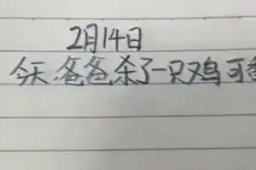 2月14日
今天,爸爸杀了一只鸡可